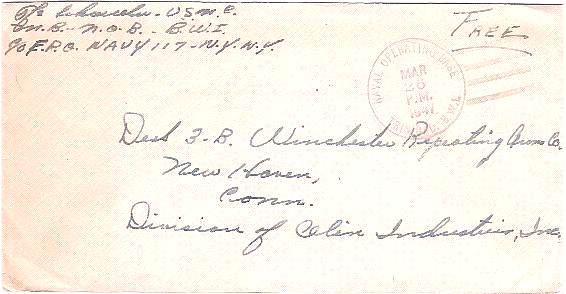 USMC.
M.B. - N.O.B. - B.W.I.
c/o F.P.O. NAVY 117 - N.Y. N.Y.
FREE
NAVAL OPERATING BASE
MAR
26
P.M.
Dest 3-B. Winchester Repeating Arms Co.
New Haven,
Conn.
Division of Olin Industries, Inc.